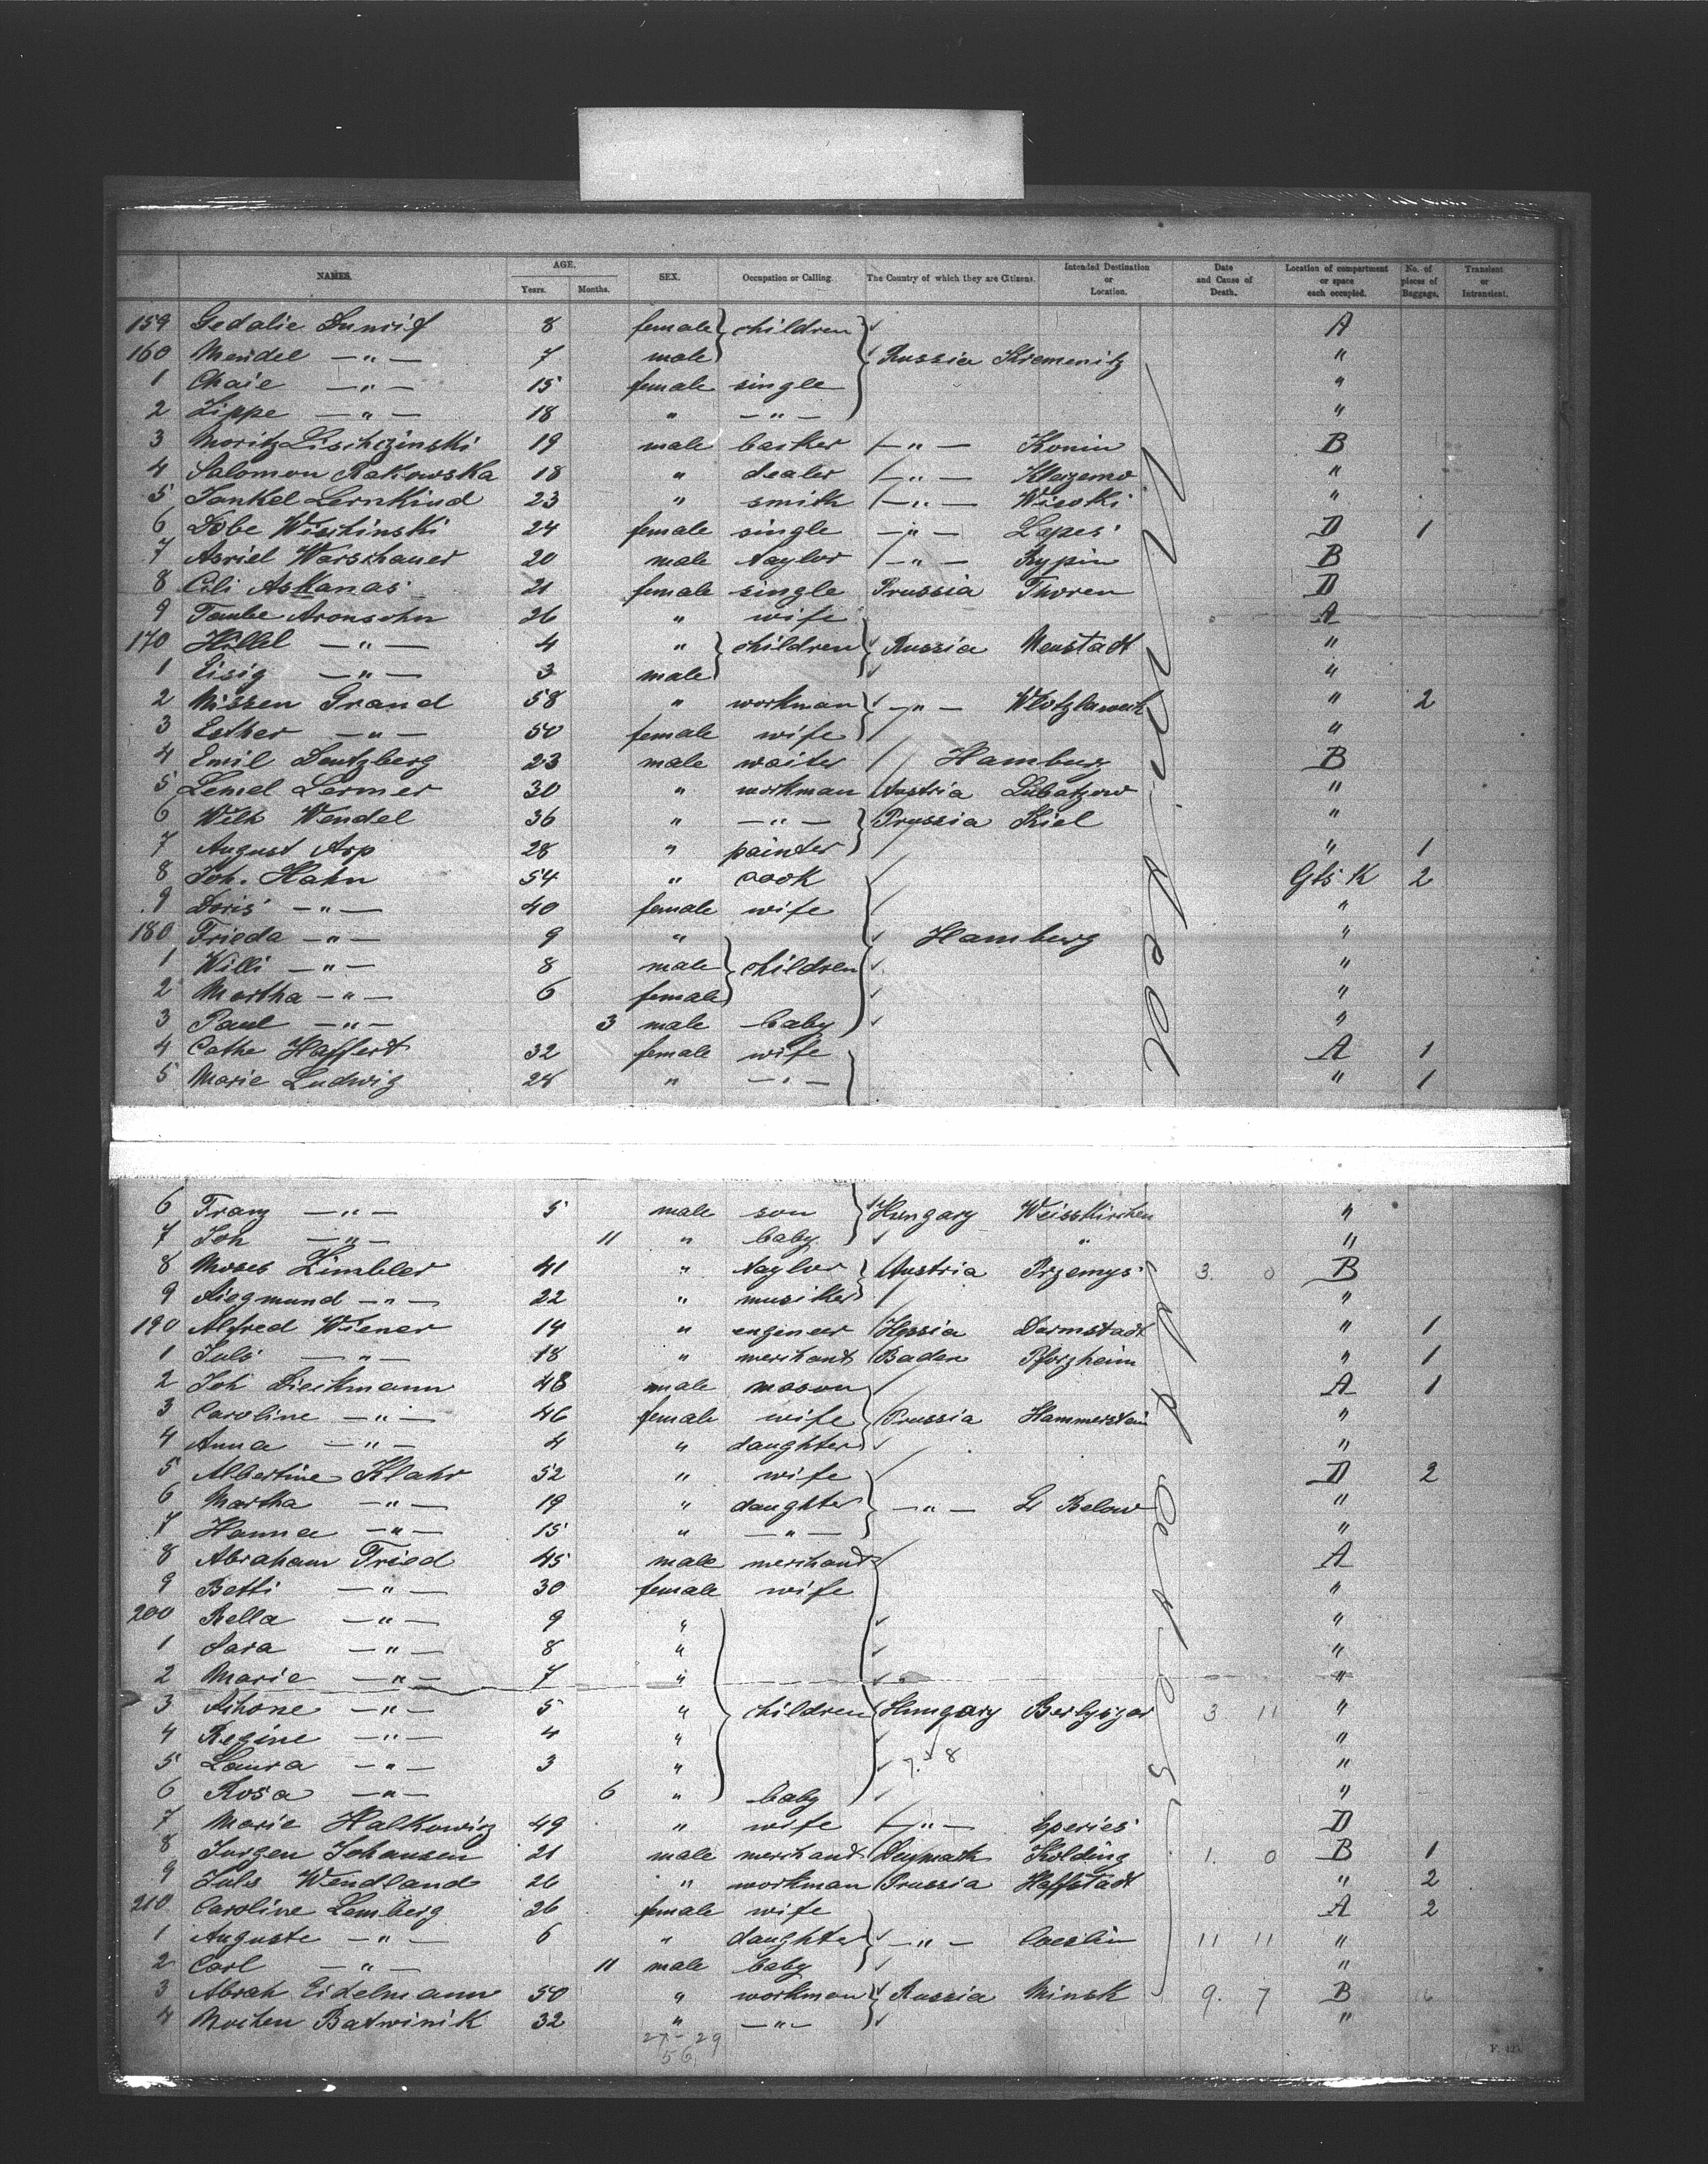 NAMES. AGE. Years. Months. SEX. Occupation or Calling. The Country of which they are Citizens. Intended Destination or Location. Date and Cause of Death. Location of compartment or space each occupied. No. of pieces of Baggage. Transient or Intransient.
159 Gedalie 8 female children A
160 Mendel —"— 7 male Russia "
1 Chaie —"— 15 female single "
2 Lippe —"— 18 " —"— "
3 Moritz Lischczinski 19 male —"— Konin B
4 Salomon Rakowska 18 " dealer —"— "
5 Jankel Lernkind 23 " smith —"— Wisotki "
6 Dobe Wischinski 24 female single —"— Lapes D 1
7 Asriel Warschauer 20 male taylor —"— Rypin B
8 Cili Askanas 21 female single Prussia Thoren D
9 Taube Aronsohn 26 " wife A
170 Hillel —"— 4 " children Russia Neustadt "
1 Eisig —"— 3 male "
2 Nissen Grand 58 " workman —"— Wlotzlaweck " 2
3 Esther —"— 50 female wife "
4 Emil Dentzberg 23 male waiter Hamburg B
5 Lemel Lermer 30 " workman Austria Lubatzow "
6 Wilh Wendel 36 " —"— Prussia Kiel "
7 August Arp 28 " painter " 1
8 Joh. Hahn 54 " cook 2
9 Doris —"— 40 female wife "
180 Frieda —"— 9 " Hamburg "
1 Willi —"— 8 male children "
2 Martha —"— 6 female "
3 Paul —"— 3 male baby "
4 Cathe Haffert 32 female wife A 1
5 Marie Ludwig 28 " —"— " 1
6 Franz —"— 5 male son Hungary Weisskirchen "
7 Joh —"— 11 " baby " "
8 Moses Zimbler 41 " taylor Austria Przemys 3. 0 B
9 Siegmund —"— 22 " musiker "
190 Alfred Wiener 14 " engeneer Hessia Darmstadt " 1
1 Juls —"— 18 " merchant Baden Pforzheim " 1
2 Joh Dieckmann 48 male mason A 1
3 Caroline —"— 46 female wife Prussia Hammerstein "
4 Anna —"— 4 " daughter "
5 Albertine Klahr 52 " wife D 2
6 Martha —"— 19 " daughter —"— Below "
7 Hanna —"— 15 " —"— "
8 Abraham Fried 45 male merchant A
9 Betti —"— 30 female wife "
200 Bella —"— 9 " "
1 Sara —"— 8 " "
2 Marie —"— 7 " "
3 —"— 5 " children Hungary 3 11 "
4 Regine —"— 4 " "
5 Laura —"— 3 " "
6 Rosa —"— 6 " baby "
7 Marie Halkowitz 49 " wife —"— Eperies D
8 Jurgen Johansen 21 male merchant Denmark Kolding 1. 0 B 1
9 Juls Wendland 26 " workman Prussia Haffstadt " 2
210 Caroline Lemberg 26 female wife A 2
1 Auguste —"— 6 " daughter —"— Coeslin 11 11 "
2 Carl —"— 11 male baby "
3 Abrah Eidelmann 50 " workman Russia Minsk 9. 7 B
4 Mochen Batwinik 32 " —"— "
27-29
56